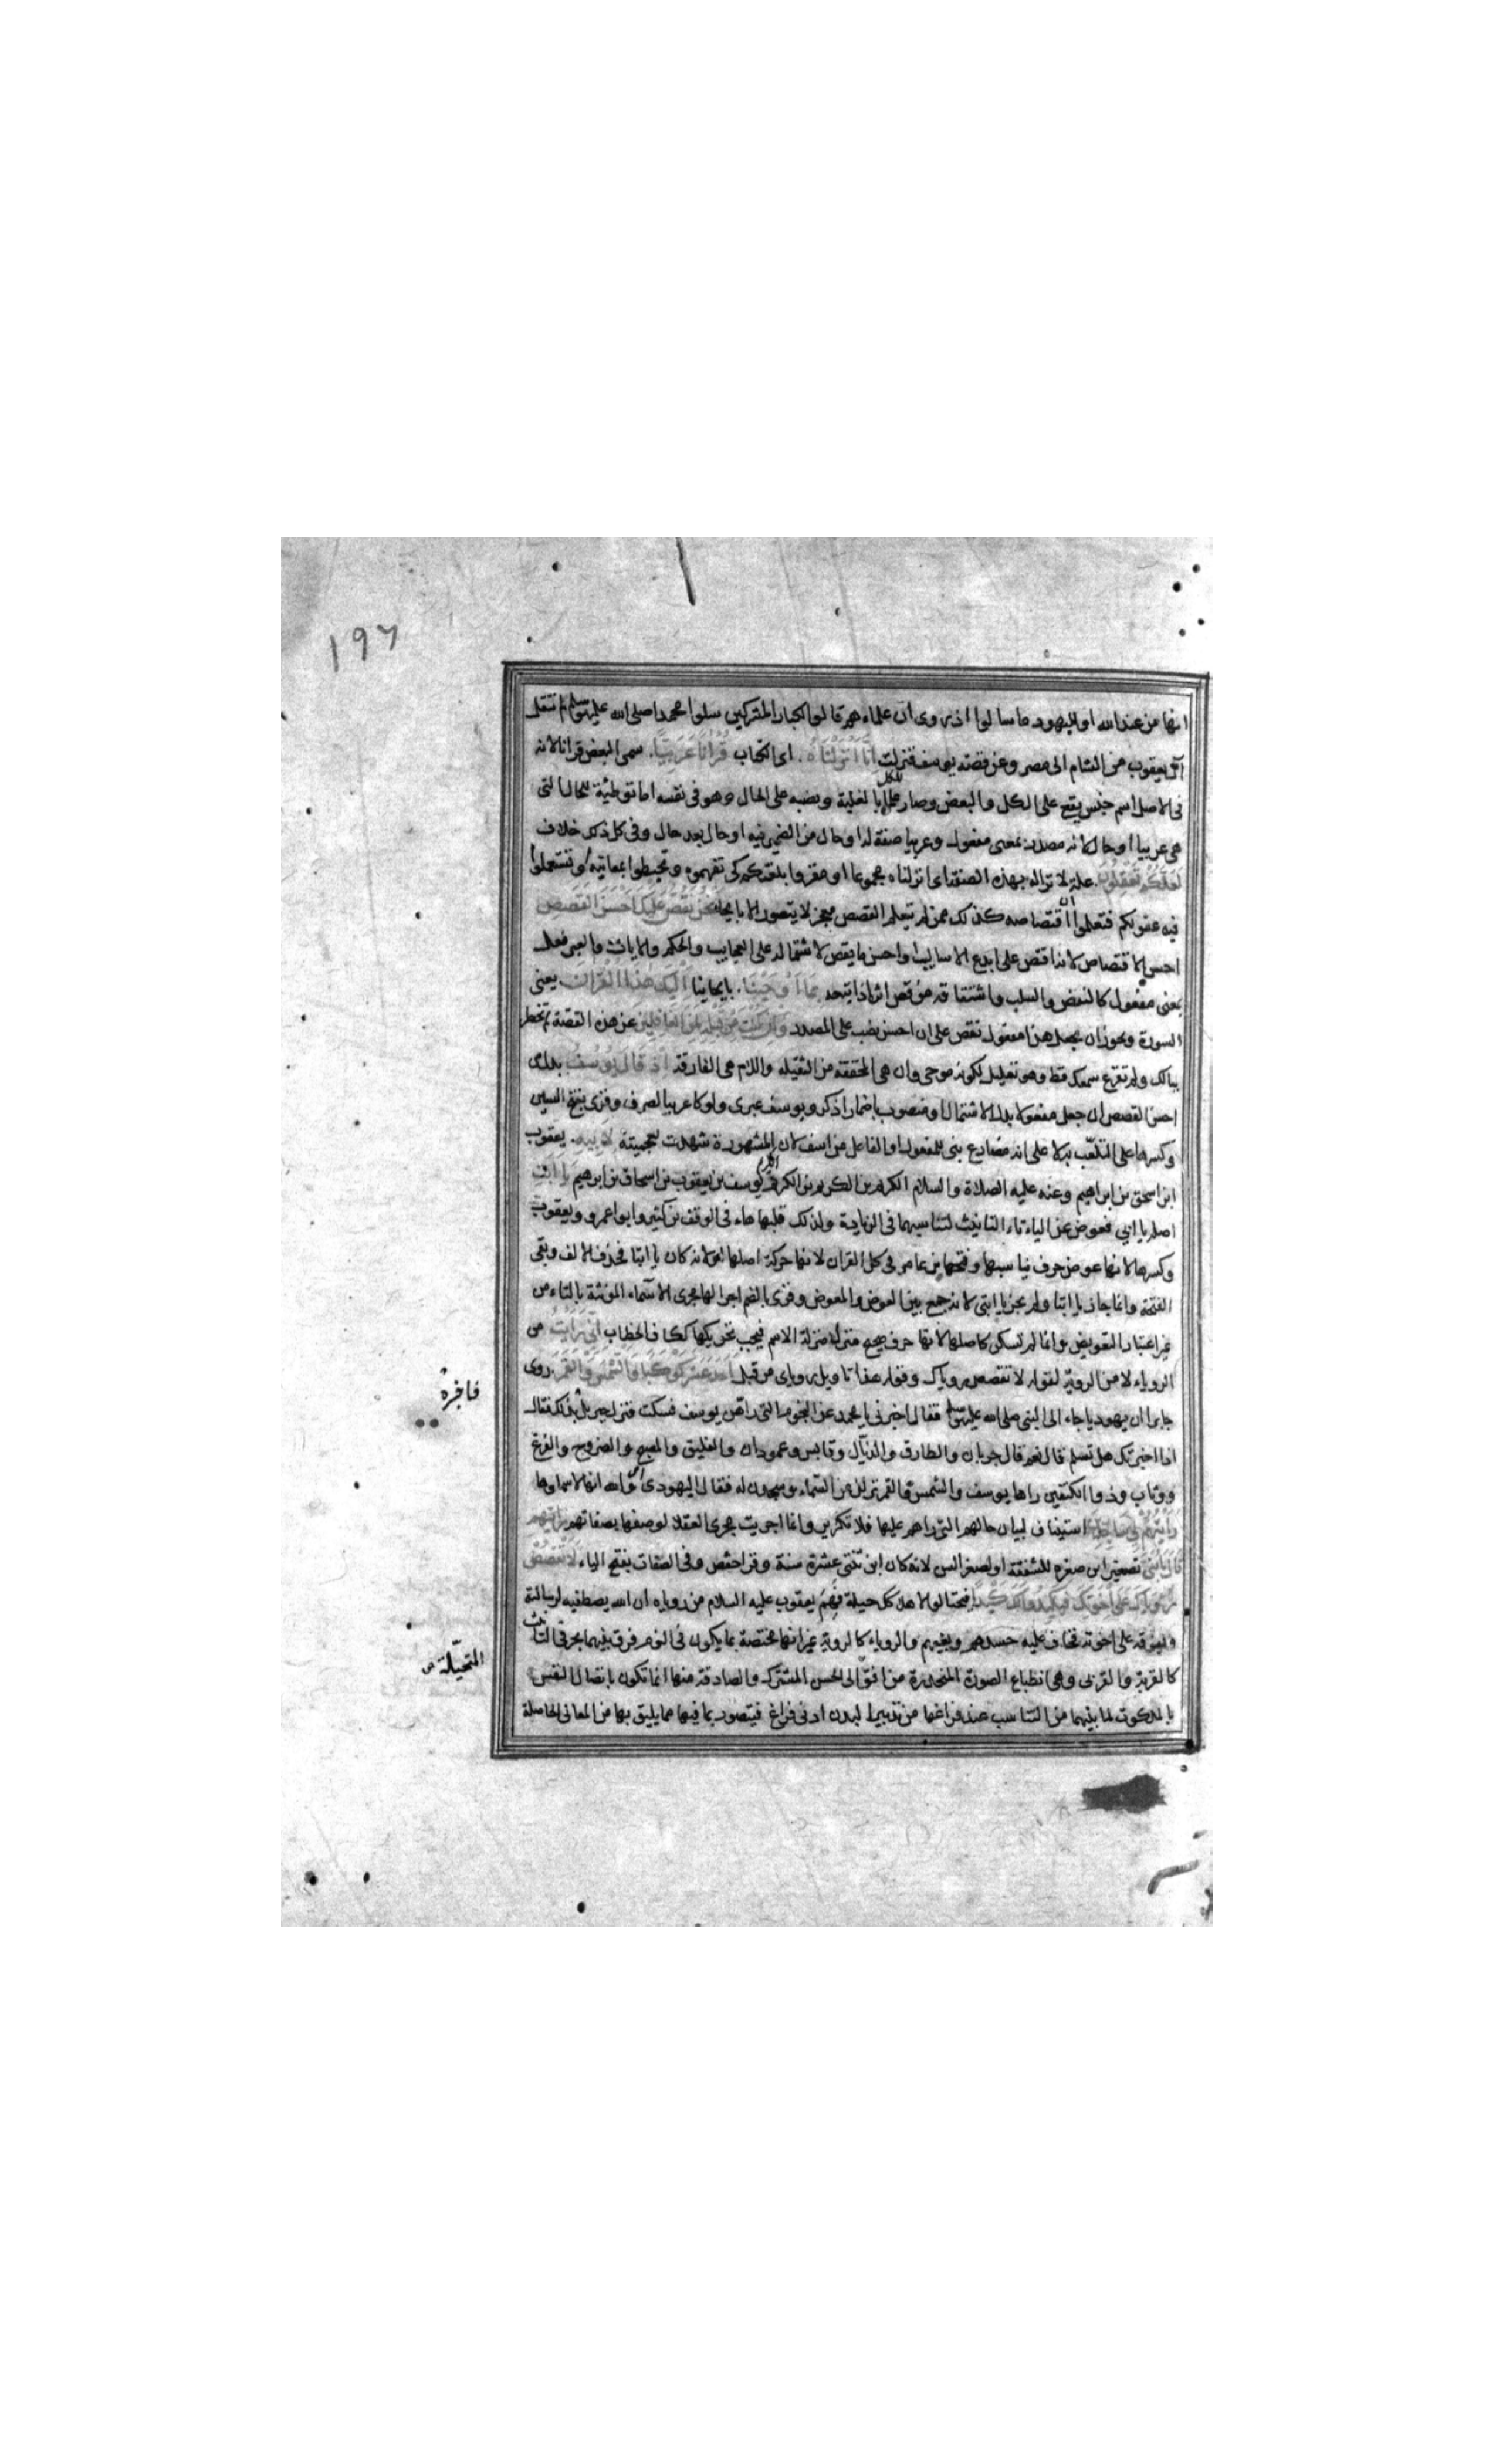 ١٩٦
انها من عند الله او لليهود ما سالوا اذ روى ان علماءهم قالوا لكبار المشركين سلوا محمدا صلى الله عليه وسلم لم انتقل
آل يعقوب من الشام الى مصر وعن قصة يوسف فنزلت انا انزلناه . اى الكتاب قرانا عربيا . سمى البعض قرانا لانه
فى الاصل اسم جنس يقع على الكل والبعض وصار علما للكل بالغلبة ونصبه على الحال وهو فى نفسه اما توطئة للحال التى
هى عربيا او حال لانه مصدر بمعنى مفعول وعربيا صفة له او حال من الضمير فيه او حال بعد حال وفى كل ذلك خلاف
لعلكم تعقلون . علة لانزاله بهذه الصفة اى انزلناه مجموعا او مقروا بلغتكم كى تفهموه وتحيطوا بمعانيه او تستعملوا
فيه عقولكم فتعلموا ان اقتصاصه كذلك ممن لم يتعلم القصص معجز لا يتصور الا بايحاء نحن نقص عليك احسن القصص
احسن الاقتصاص لانه اقتص على ابدع الاساليب او احسن ما يقص لاشتماله على العجايب والحكم والايات والعبر فعل
بمعنى مفعول كالنقض والسلب واشتقاقه من قص اثره اذا تبعه بما اوحينا . بايحاينا اليك هذا القران يعنى
السورة ويجوز ان يجعل هذا مفعول نقص على ان احسن نصب على المصدر وان كنت من قبله لمن الغافلين عن هذه القصة لم تخطر
ببالك ولم تقرع سمعك قط وهو تعليل لكونه موحى وان هى المخففة من الثقيلة واللام هى الفارقة اذ قال يوسف بدل من
احسن القصص ان جعل مفعولا بدل الاشتمال او منصوب باضمار اذكر ويوسف عبرى ولو كا عربيا لصرف وقرى بفتح السين
وكسرها على التلعب به لا على انه مضارع بنى للمفعول او الفاعل من اسف لان المشهورة شهدت بعجميتة لابيه . يعقوب
ابن اسحق بن ابراهيم وعنه عليه الصلاة والسلام الكريم بن الكريم بن الكريم يوسف بن يعقوب بن اسحاق بن ابرهيم يا ابت
اصله يا ابي فعوض عن الياء تاء التانيث لتناسبهما فى الزيادة ولذلك قلبها هاء فى الوقف بن كثير وابو اعمرو ويعقوب
وكسرها لانها عوض حرف يناسبها وفتحها بن عامر فى كل القران لانها حركة اصلها او لانه كان يا ابتا فحذف الالف وبقى
الفتحة وانما جاز يا ابتا ولم يجز يا ابتى لانه جمع بين العوض والمعوض وقرى بالضم اجرا لها مجرى الاسماء المونثة بالتاء من
غير اعتبار التعويض وانما لم تسكن كاصلها لانها حرف صحيح منزل منزلة الاسم فيجب تحريكها ككاف الخطاب انى رايت من
الروياء لا من الروية لقوله لا تقصص روياك وقوله هذا تاويل روياى من قبل احد عشر كوكبا والشمس والقمر . روى
جابر ان يهوديا جاء الى النبى صلى الله عليه وسلم فقال اخبرنى يا محمد عن النجوم التى راهن يوسف فسكت فنزل جبريل بذلك فقال
اذا اخبرتك هل تسلم قال نعم قال جريان والطارق والذيال وقابس وعمودان والفليق والمصبح والضروح والفرغ
ووثاب وذو الكتفين راها يوسف والشمس والقمر نزلن من السماء وسجدن له فقال اليهودى اى والله انها لاسماوها
رايتهم لى ساجدين استيناف لبيان حالهم التى راهم عليها فلا تكرير وانما اجريت مجرى العقلا لوصفها بصفاتهم
قال يا بنى تصغير ابن صغره للشفقة او لصغر السن لانه كان ابن ثنتى عشرة سنة وقرا حفص وفى الصفات بفتح الياء لا تقصص
روياك على اخوتك فيكيدوا لك كيدا فيحتالوا لاهلاكك حيلة فهم يعقوب عليه السلام من روياه ان الله يصطفيه لرسالته
ويفوقه على اخوته فخاف عليه حسدهم وبغيهم والروياء كالروية غير انها مختصة بما يكون فى النوم فرق بينهما بحرفى التانيث
كالقربة والقربى وهى انطباع الصورة المنحدرة من افق الى الحس المشترك والصادقة منها انما تكون باتصال النفس
بالملكوت لما بينهما من التناسب عند فراغها من تدبير البدن ادنى فراغ فيتصور بما فيها مما يليق بها من المعانى الحاصلة
المتخيلة